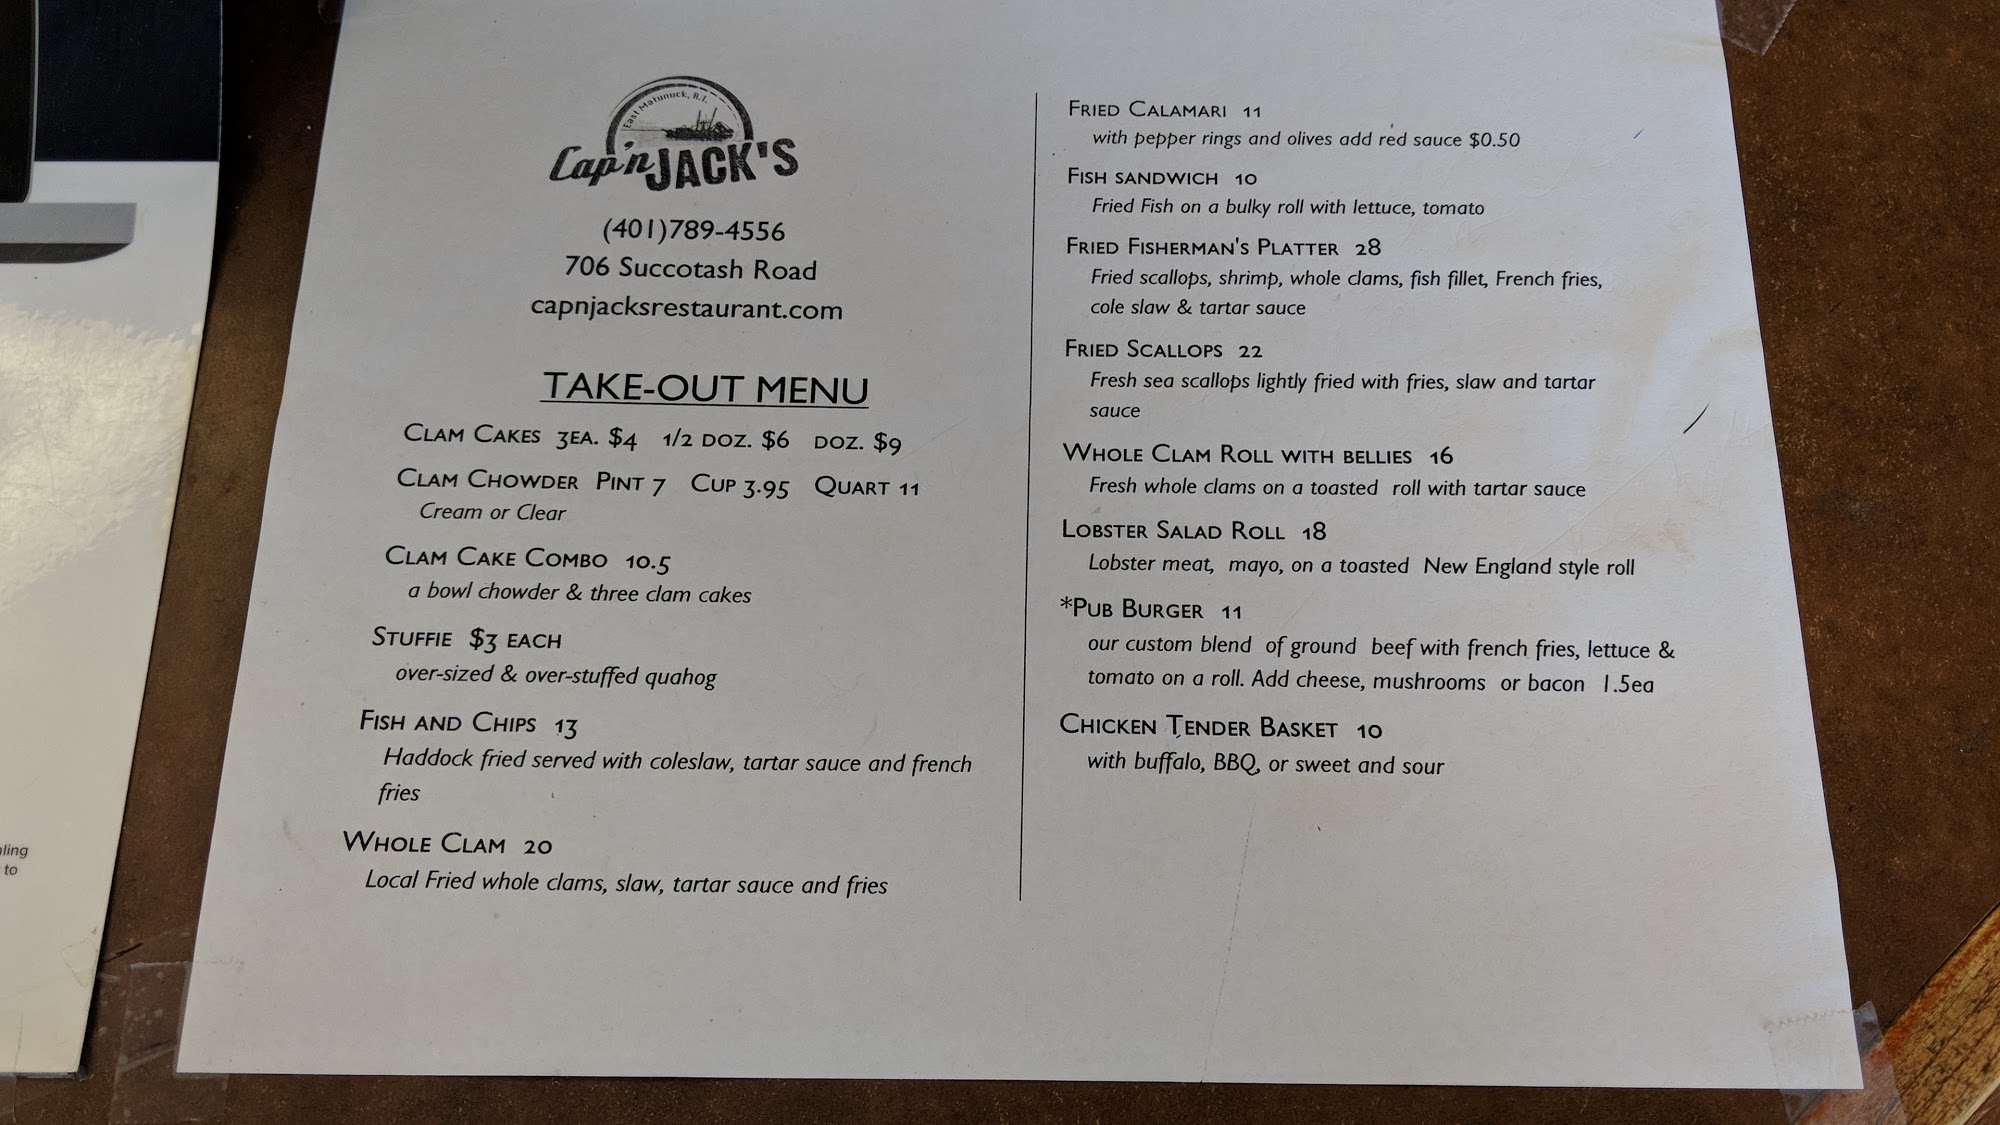 East Matunuck, R.I.
Cap'n JACK'S
(401)789-4556
706 Succotash Road
capnjacksrestaurant.com
TAKE-OUT MENU
CLAM CAKES 3EA. $4 1/2 DOZ. $6 DOZ. $9
CLAM CHOWDER PINT 7 CUP 3.95 QUART 11
Cream or Clear
CLAM CAKE COMBO 10.5
a bowl chowder & three clam cakes
STUFFIE $3 EACH
over-sized & over-stuffed quahog
FISH AND CHIPS 13
Haddock fried served with coleslaw, tartar sauce and french
fries
WHOLE CLAM 20
Local Fried whole clams, slaw, tartar sauce and fries
FRIED CALAMARI 11
with pepper rings and olives add red sauce $0.50
FISH SANDWICH 10
Fried Fish on a bulky roll with lettuce, tomato
FRIED FISHERMAN'S PLATTER 28
Fried scallops, shrimp, whole clams, fish fillet, French fries,
cole slaw & tartar sauce
FRIED SCALLOPS 22
Fresh sea scallops lightly fried with fries, slaw and tartar
sauce
WHOLE CLAM ROLL WITH BELLIES 16
Fresh whole clams on a toasted roll with tartar sauce
LOBSTER SALAD ROLL 18
Lobster meat, mayo, on a toasted New England style roll
*PUB BURGER 11
our custom blend of ground beef with french fries, lettuce &
tomato on a roll. Add cheese, mushrooms or bacon 1.5ea
CHICKEN TENDER BASKET 10
with buffalo, BBQ, or sweet and sour
to